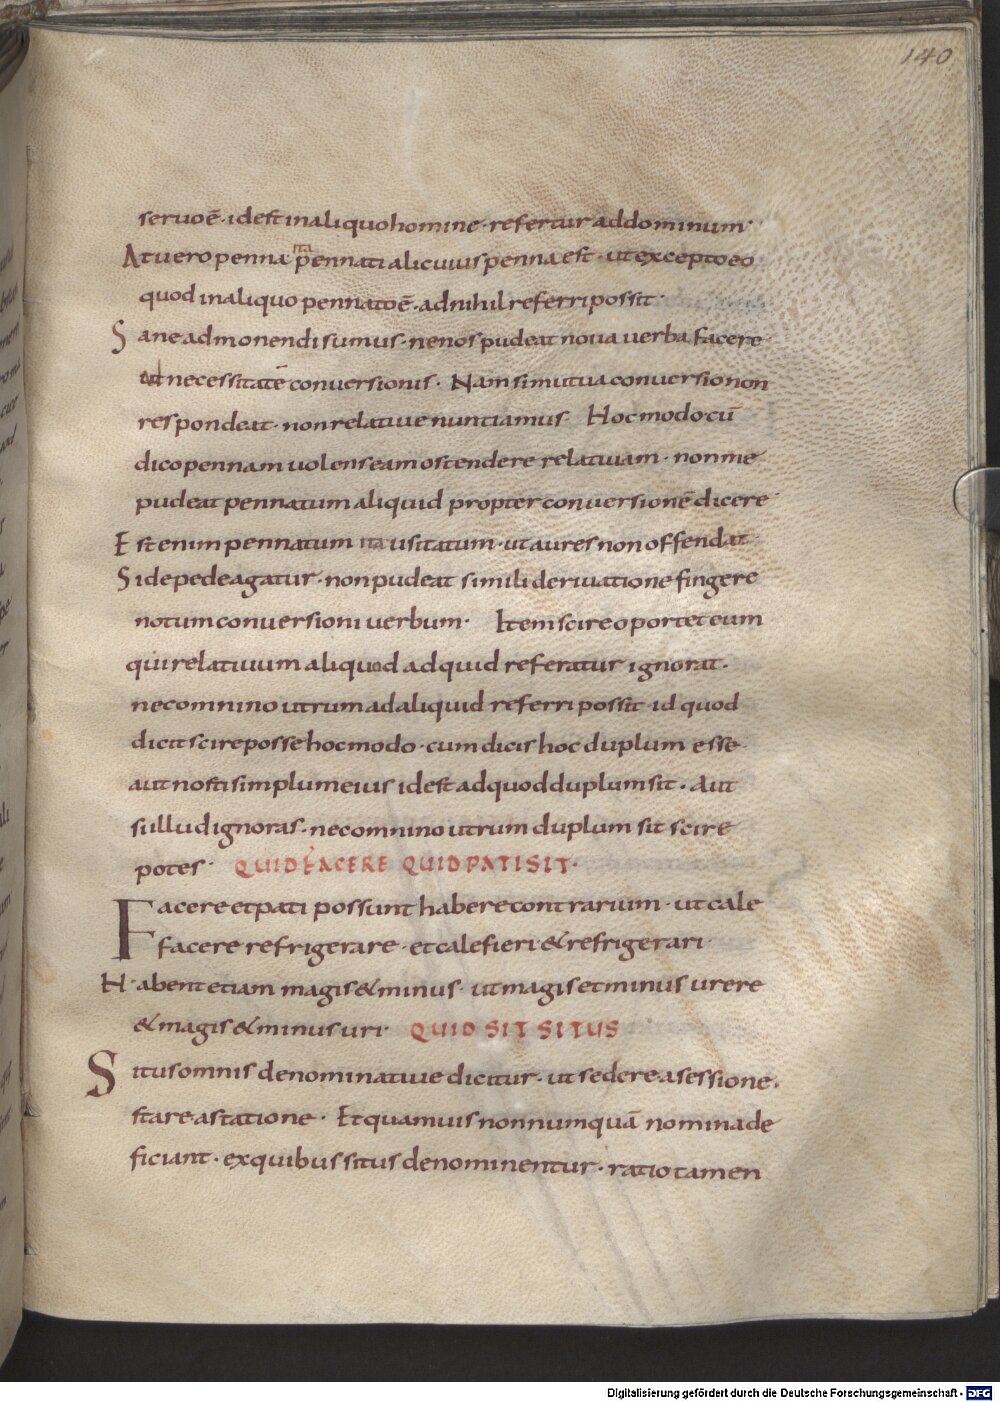 140
seruo ē· id est in aliquo homine· refertur ad dominum·
At uero penna ita pennati alicuius penna est· ut excepto eo
quod in aliquo pennato ē· ad nihil referri possit·
Sane admonendi sumus· ne nos pudeat noua uerba facere·
ad necessitatē conuersionis· Nam si mutua conuersio non
respondeat· non relatiue nuntiamus· Hoc modo cū
dico pennam uolens eam ostendere relatiuam· non me
pudeat pennatum aliquid propter conuersionē dicere·
Est enim pennatum ita usitatum· ut aures non offendat·
Si de pede agatur· non pudeat simili deriuatione fingere
notum conuersioni uerbum· Item scire oportet eum
qui relatiuum aliquod ad quid referatur ignorat·
nec omnino utrum ad aliquid referri possit· id quod
dicit scire posse hoc modo· cum dicis hoc duplum esse·
aut nosti simplum eius id est ad quod duplum sit· Aut
si illud ignoras· nec omnino utrum duplum sit scire
potes· QUID FACERE QUID PATI SIT·
Facere et pati possunt habere contrarium· ut cale
facere refrigerare· et calefieri & refrigerari·
Habent etiam magis & minus· ut magis et minus urere
& magis & minus uri· QUID SIT SITUS
Situs omnis denominatiue dicitur· ut sedere a sessione·
stare a statione· Et quamuis nonnumquā nomina de
ficiant· ex quibus situs denominentur· ratio tamen
Digitalisierung gefördert durch die Deutsche Forschungsgemeinschaft - DFG